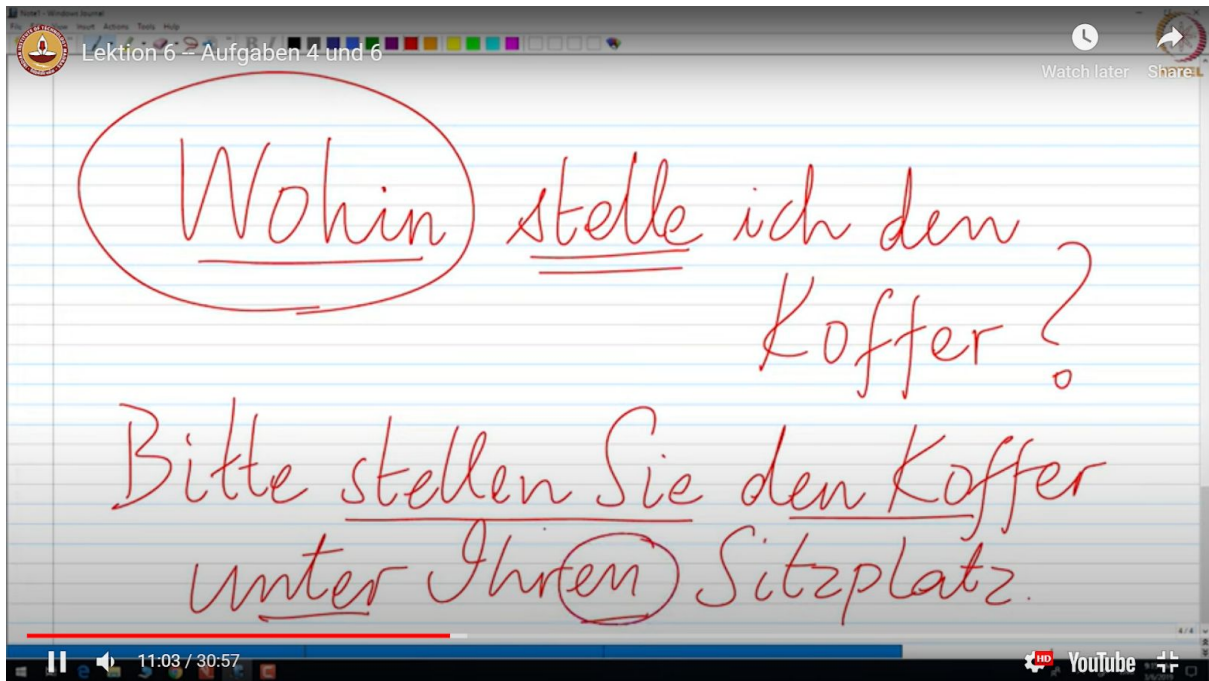 Note1 - Windows Journal
Lektion 6 -- Aufgaben 4 und 6
Watch later
Share
Wohin stelle ich den
Koffer?
Bitte stellen Sie den Koffer
unter Ihren Sitzplatz.
4 / 4
11:03 / 30:57
HD
YouTube